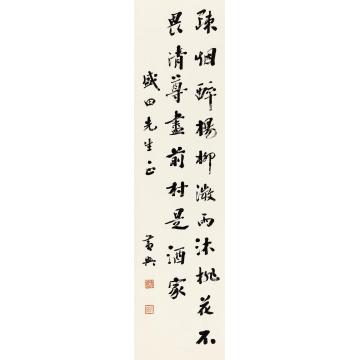 疎烟醉楊柳澂雨沐桃花不
畏清尊盡前村是酒家
盛田先生正
黄興